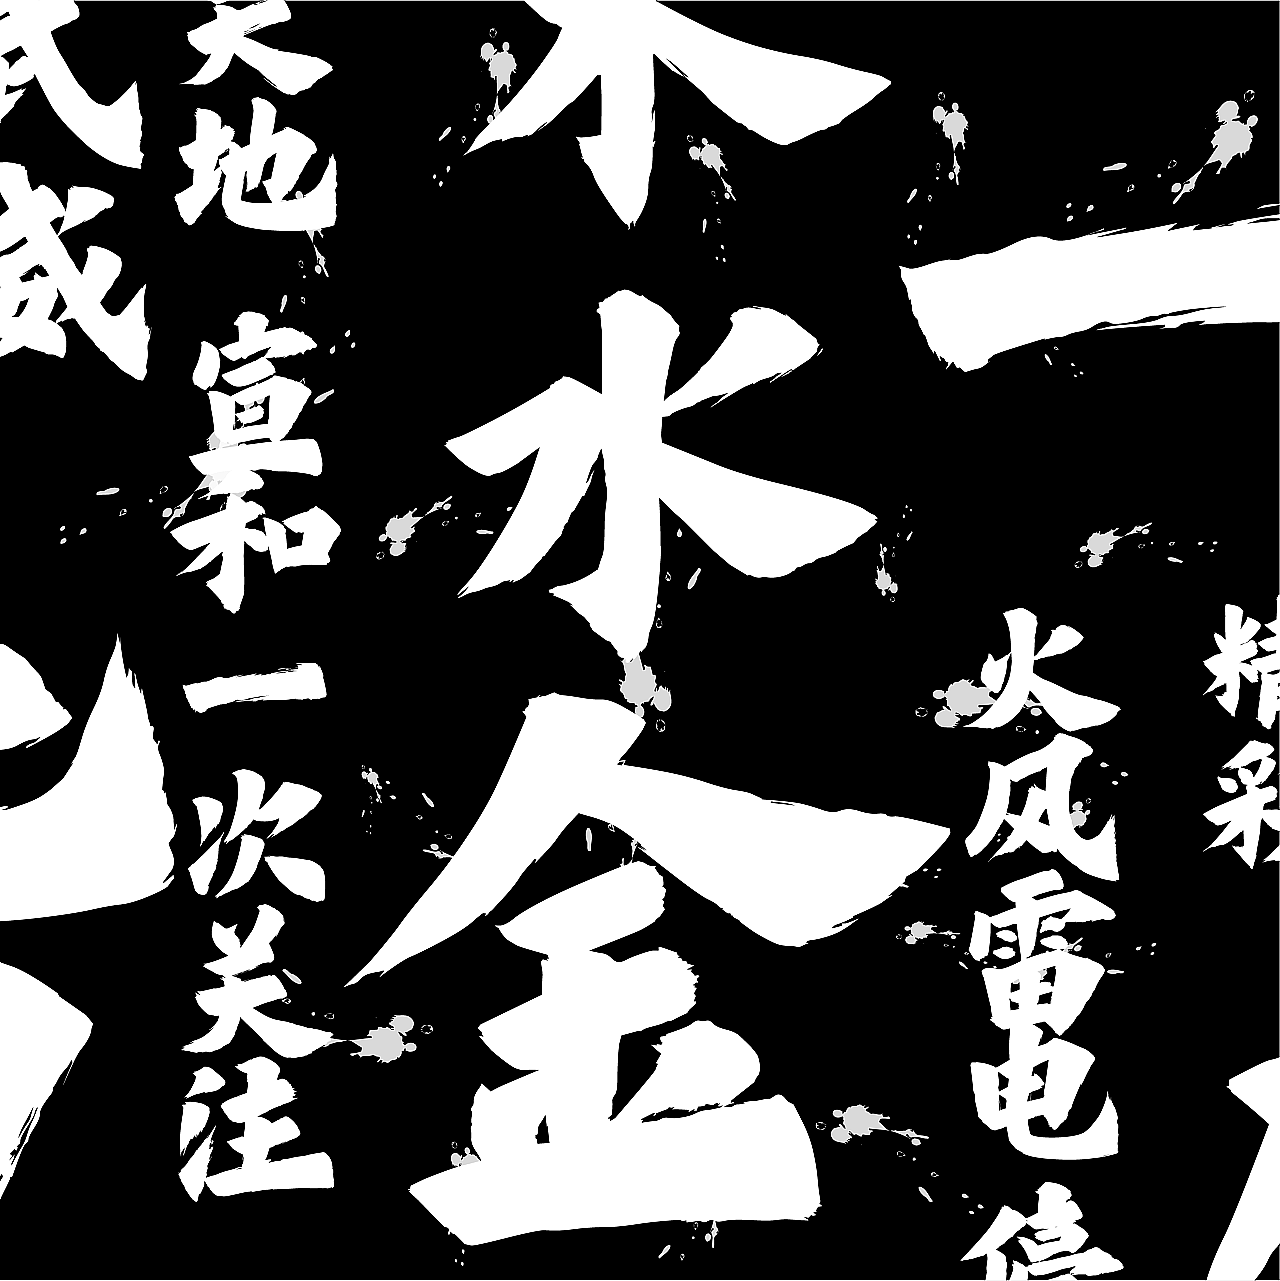 威
天地
宣和
一次关注
木水金
一
火风雷电
停
精彩